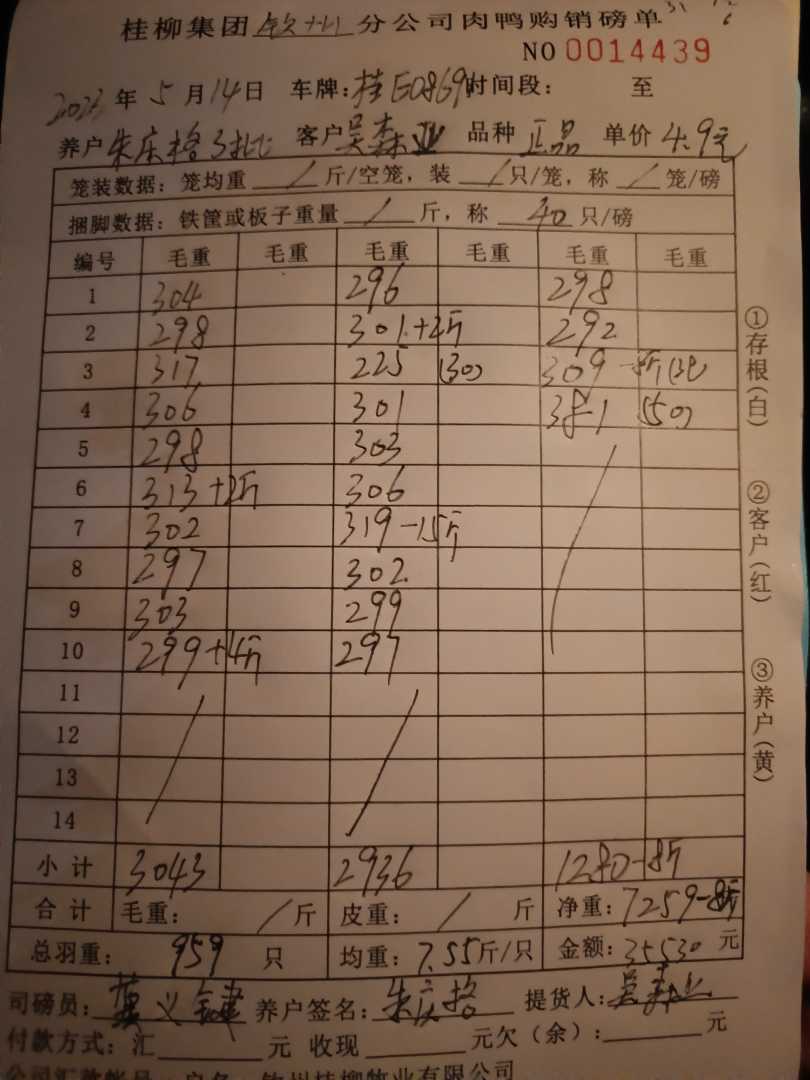 桂柳集团钦州分公司肉鸭购销磅单
NO 0014439
2023年5月14日 车牌:桂E0869 时间段: 至
养户 朱庆格3批 客户 吴森业 品种 正品 单价 4.9元
笼装数据:笼均重 / 斤/空笼,装 / 只/笼,称 / 笼/磅
捆脚数据:铁筐或板子重量 / 斤,称 40 只/磅
编号 毛重 毛重 毛重 毛重 毛重 毛重
1 304 296 298
2 298 301+2斤 292
3 317 225 (30) 309
4 306 301 381 (50)
5 298 303
6 313+2斤 306
7 302 319-15斤
8 297 302
9 303 299
10 299+4斤 297
11
12
13
14
小计 3043 2936 1280-8斤
合计 毛重: / 斤 皮重: / 斤 净重:7259-8斤
总羽重: 959 只 均重:7.55斤/只 金额:35530元
司磅员: 养户签名:朱庆格 提货人:吴森业
付款方式:汇 元 收现 元欠(余): 元
公司汇款帐号 户名 钦州桂柳牧业有限公司
①存根(白)
②客户(红)
③养户(黄)